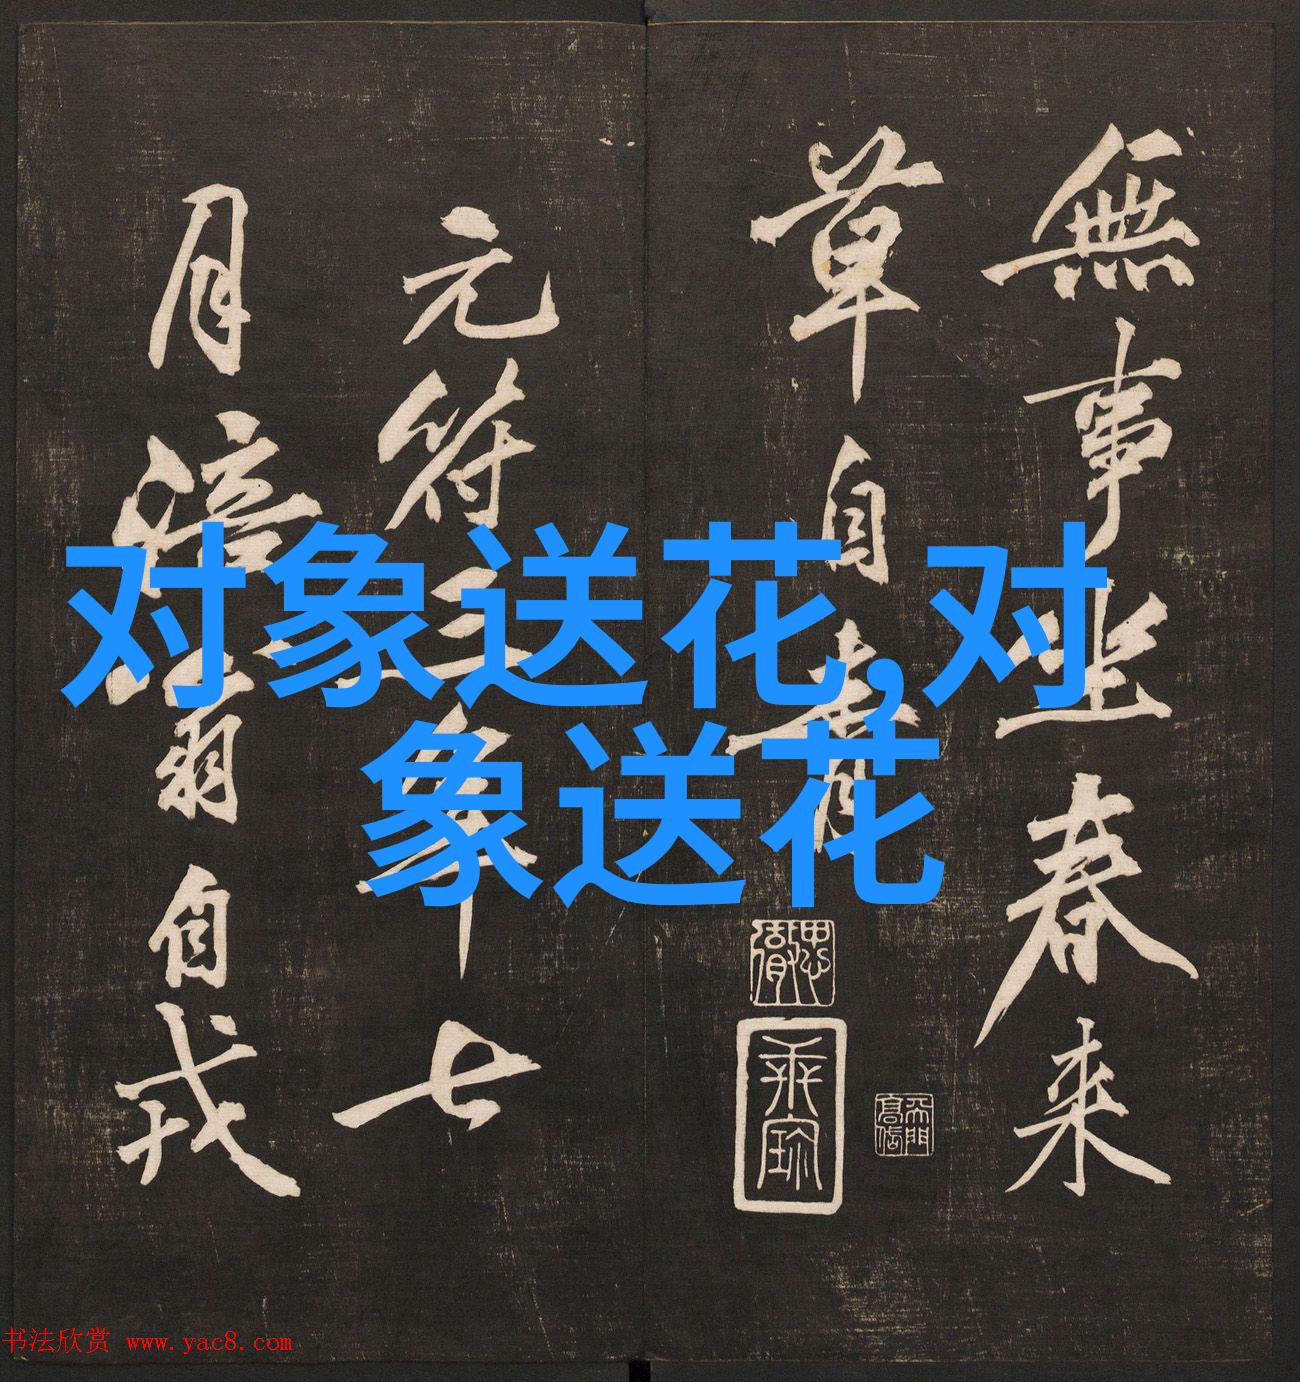 無事坐春来
草自青
元符三年七
月涪翁自戎
对象送花,对
象送花
书法欣赏 www.yac8.com